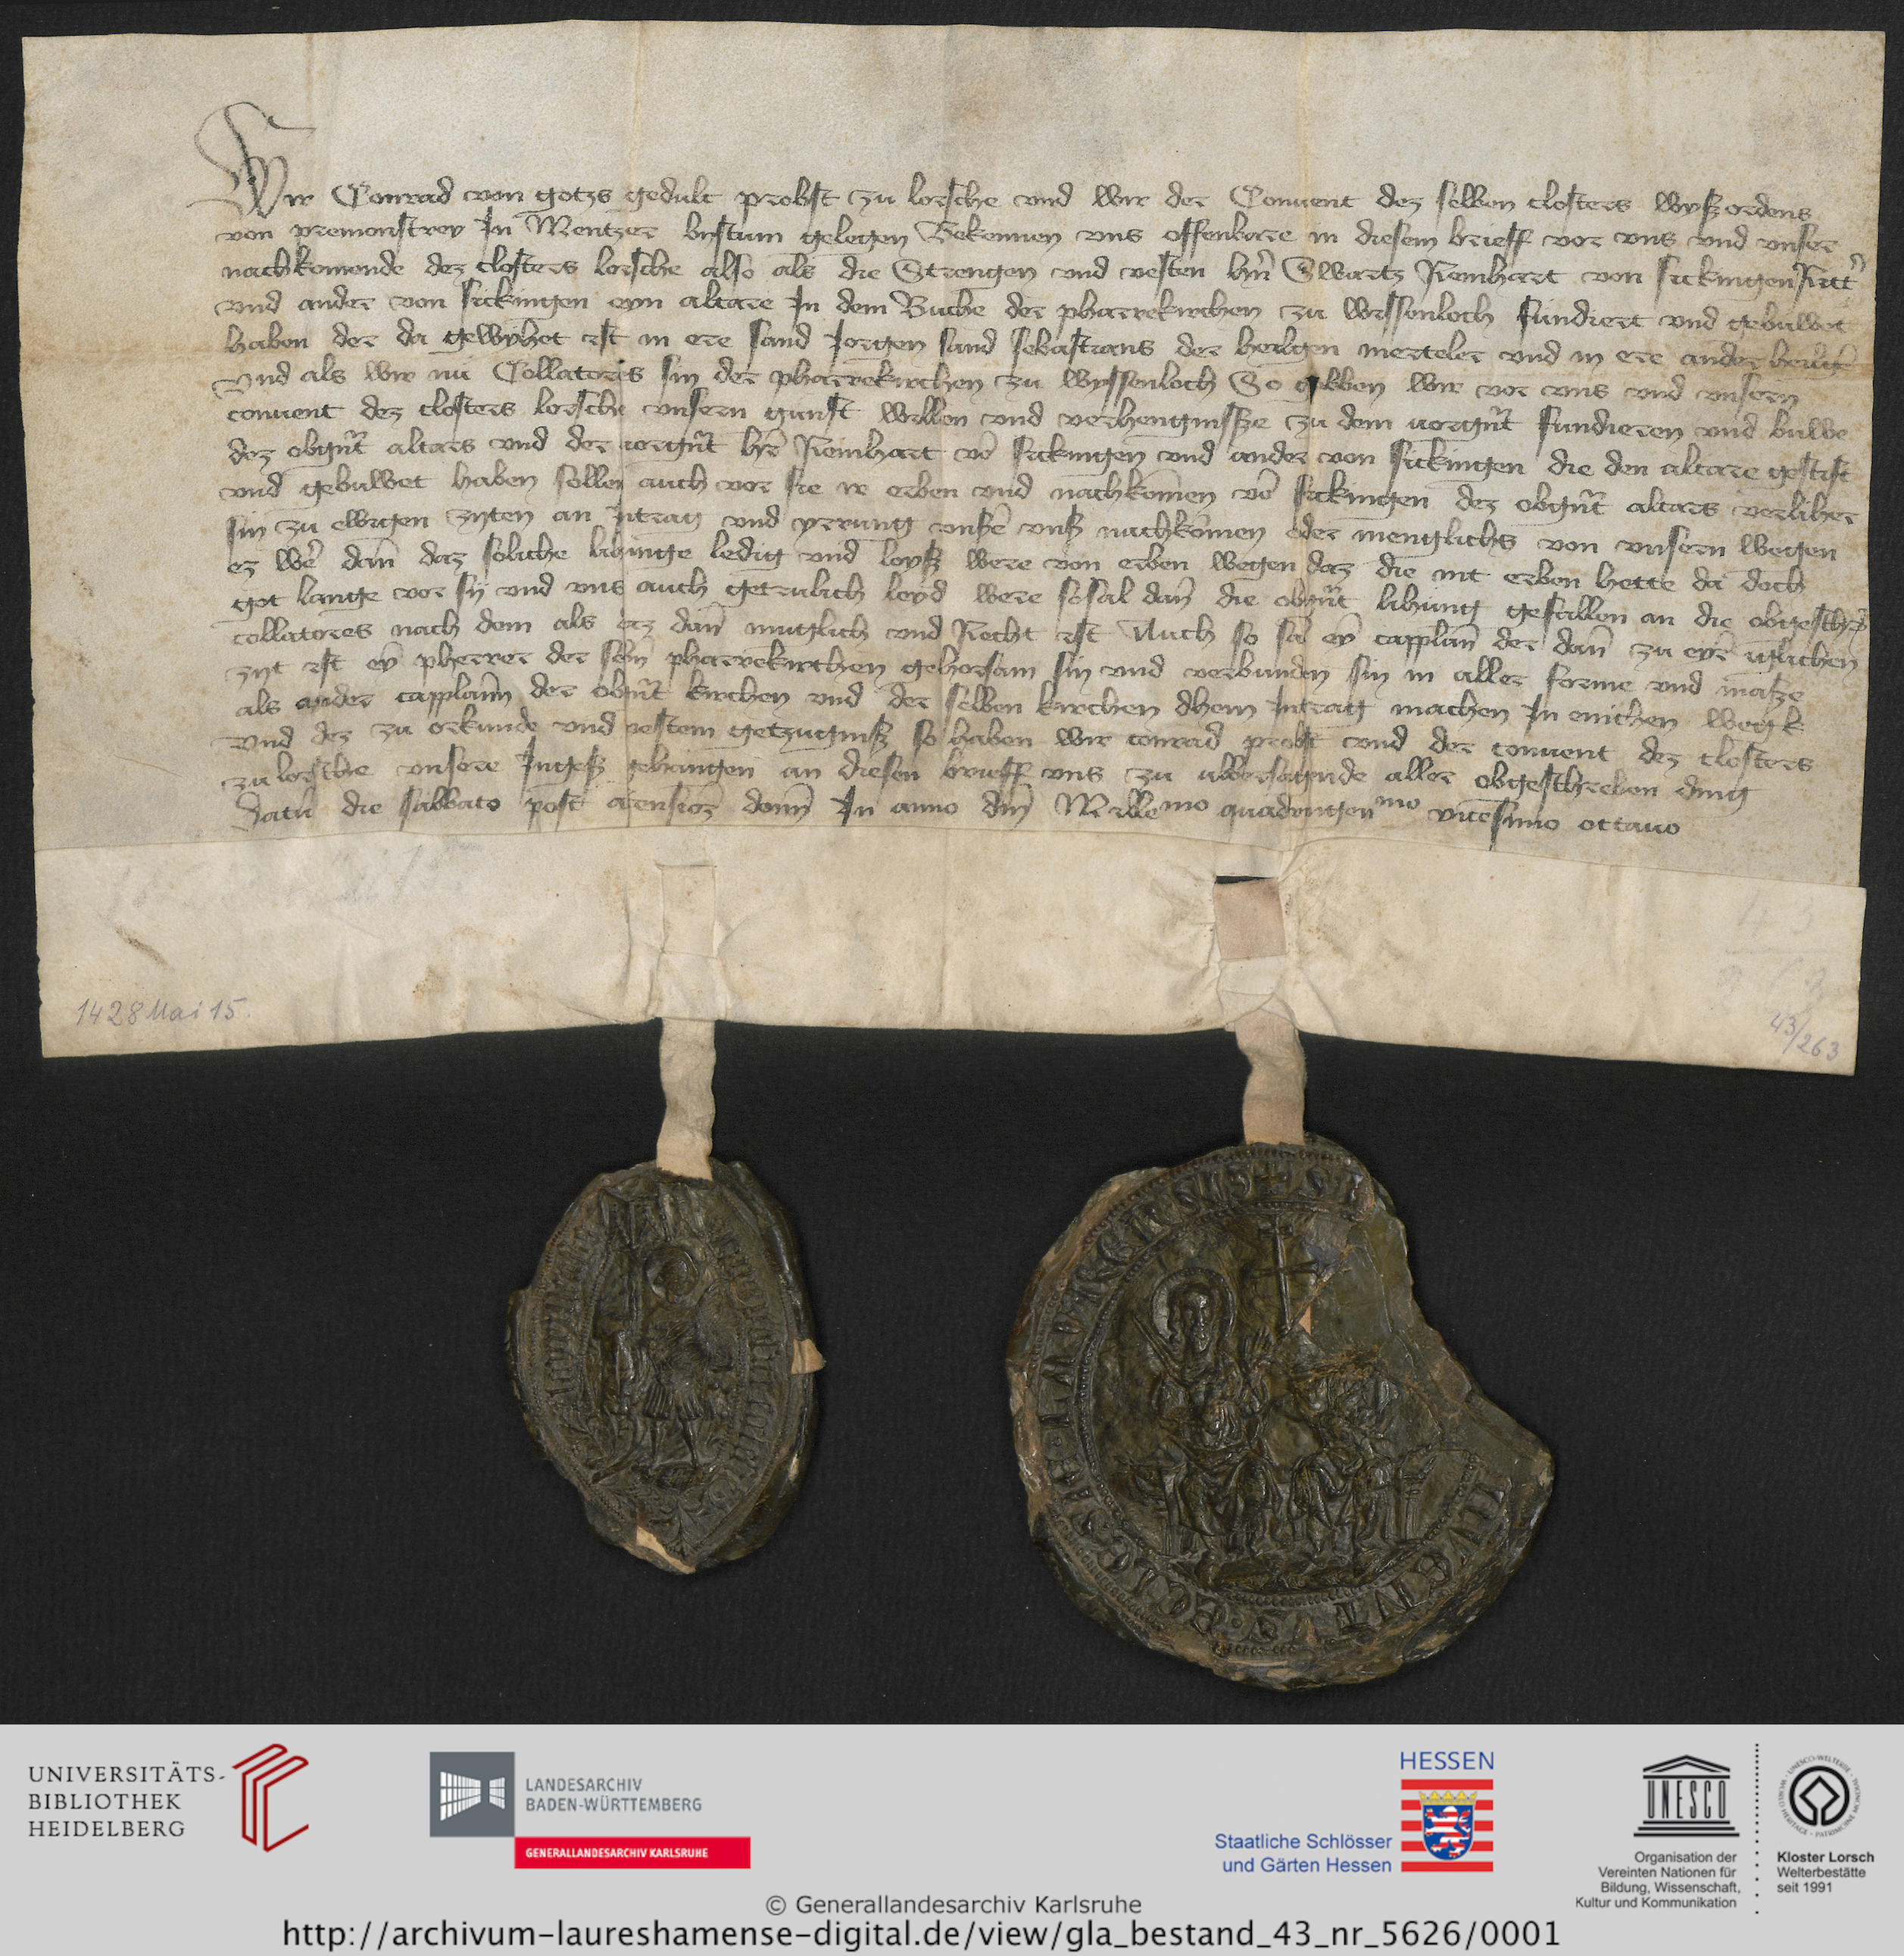 Wir Conrad von gotzs gedult probst zu lorsche vnd wir der Conuent dez selben closters wyszordens
von premonstrey In Mentzer bystum gelegen Bekennen vns offenbare in diesem brieff vor vns vnd vnser
nachkomende dez closters lorsche also als die Strengen vnd vesten hrn Swartz Reinhart von sickingen Ritt
vnd ander von sickingen eyn altare In dem Buche der pharrekirchen zu wissenloch fundiert vnd gebuwet
haben der da gewyhet ist in ere sand Jorgen sand sebastians der heilgen merteler vnd in ere ander heilig
Vnd als wir nu Collatores sin der pharrekirchen zu wyssenloch So gebben wir vor vns vnd vnsern
conuent dez closters lorsche vnsern gunst willen vnd verhengnisze zu dem vorgnt fundieren vnd buwe
dez obgnt altars vnd der vorgnt hre Reinhart vo sickingen vnd ander von sickingen die den altare gestift
vnd gebuwet haben sollen auch vor sie ir erben vnd nachkomen vo sickingen dez obgnt altars verliher
sin zu ewigen zyten an Intrag vnd yrrung vnsze vnsz nachkomen oder menglichs von vnsern wegen
ez wer dan daz soliche lihunge ledig vnd loysz were von erben wegen daz die nit erben hette da doch
got lange vor sy vnd vns auch getrulich leyd were so sal dan die obgnt lihung gefallen an die obgeschr
collatores nach dem als iz dan muglich vnd Recht ist Auch so sal ey capplan der dan zu eyr itlichen
zyt ist ey pherrer der selbn pharrekirchen gehorsam sin vnd verbunden sin in aller forme vnd masze
als ander capplann der obgnt kirchen vnd der selben kirchen dhein Intrag machen In enichen weg
Vnd dez zu orkunde vnd vestem getzugnisz so haben wir conrad probst vnd der conuent dez closters
zu lorsche vnsere Ingesz gehangen an diesen brieff vns zu vbersagende aller obgeschreben ding
Datu die sabbato post ascensioz domi In anno dni Millemo quadringenmo vicesimo octauo
1428 Mai 15.
43/263
UNIVERSITÄTS-
BIBLIOTHEK
HEIDELBERG
LANDESARCHIV
BADEN-WÜRTTEMBERG
GENERALLANDESARCHIV KARLSRUHE
HESSEN
Staatliche Schlösser
und Gärten Hessen
UNESCO
Organisation der
Vereinten Nationen für
Bildung, Wissenschaft,
Kultur und Kommunikation
Kloster Lorsch
Welterbestätte
seit 1991
© Generallandesarchiv Karlsruhe
http://archivum-laureshamense-digital.de/view/gla_bestand_43_nr_5626/0001